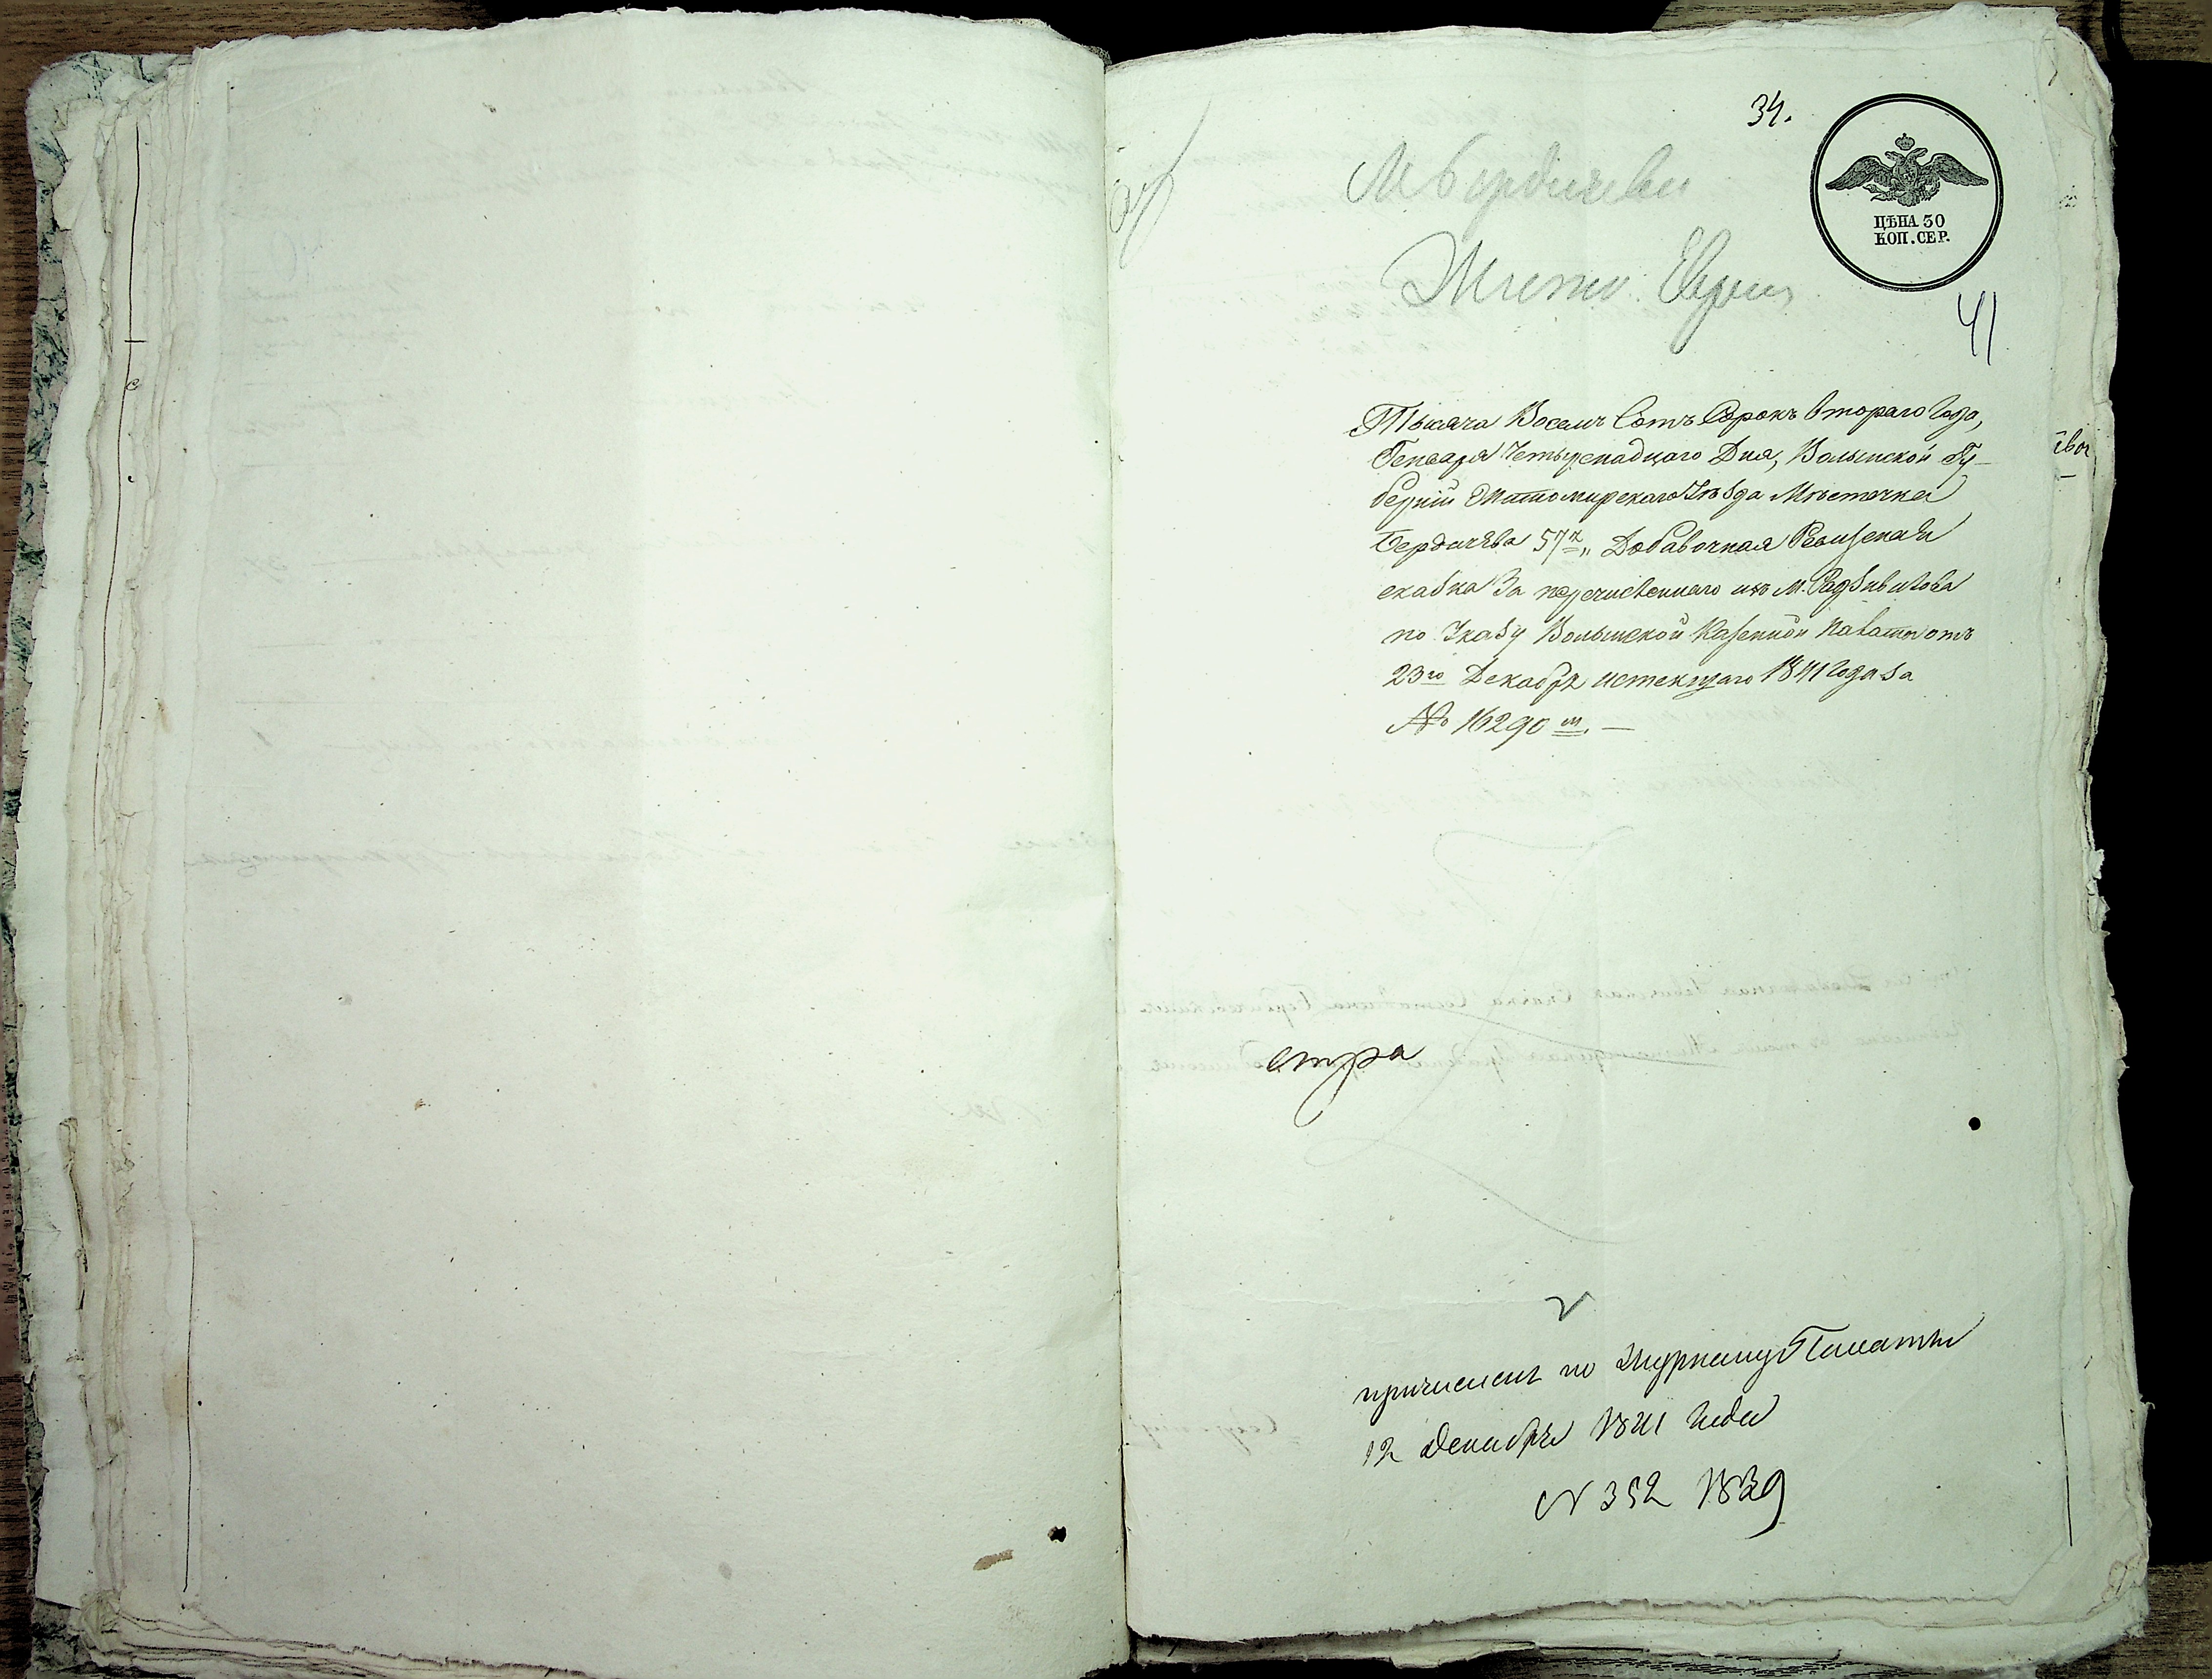 34.
ЦѢНА 30
КОП. СЕР.
М Бердичева
Мѣщан. Евреи
41
Тысяча Восемь Сотъ Сорокъ Втораго Года,
Генваря Четырнадцаго Дня, Волынской Гу-
бернiи Житомирскаго Уѣзда Мѣстечка
Бердичева 57я „ Добавочная Ревизская
сказка За перечисленнаго изъ М. Радзивилова
по Указу Волынской Казенной Палаты отъ
23го Декабря истекшаго 1841 Года за
№ 16290м. —
причисленъ по Журналу Палаты
12 Декабря 1841 Года
N 352 1839